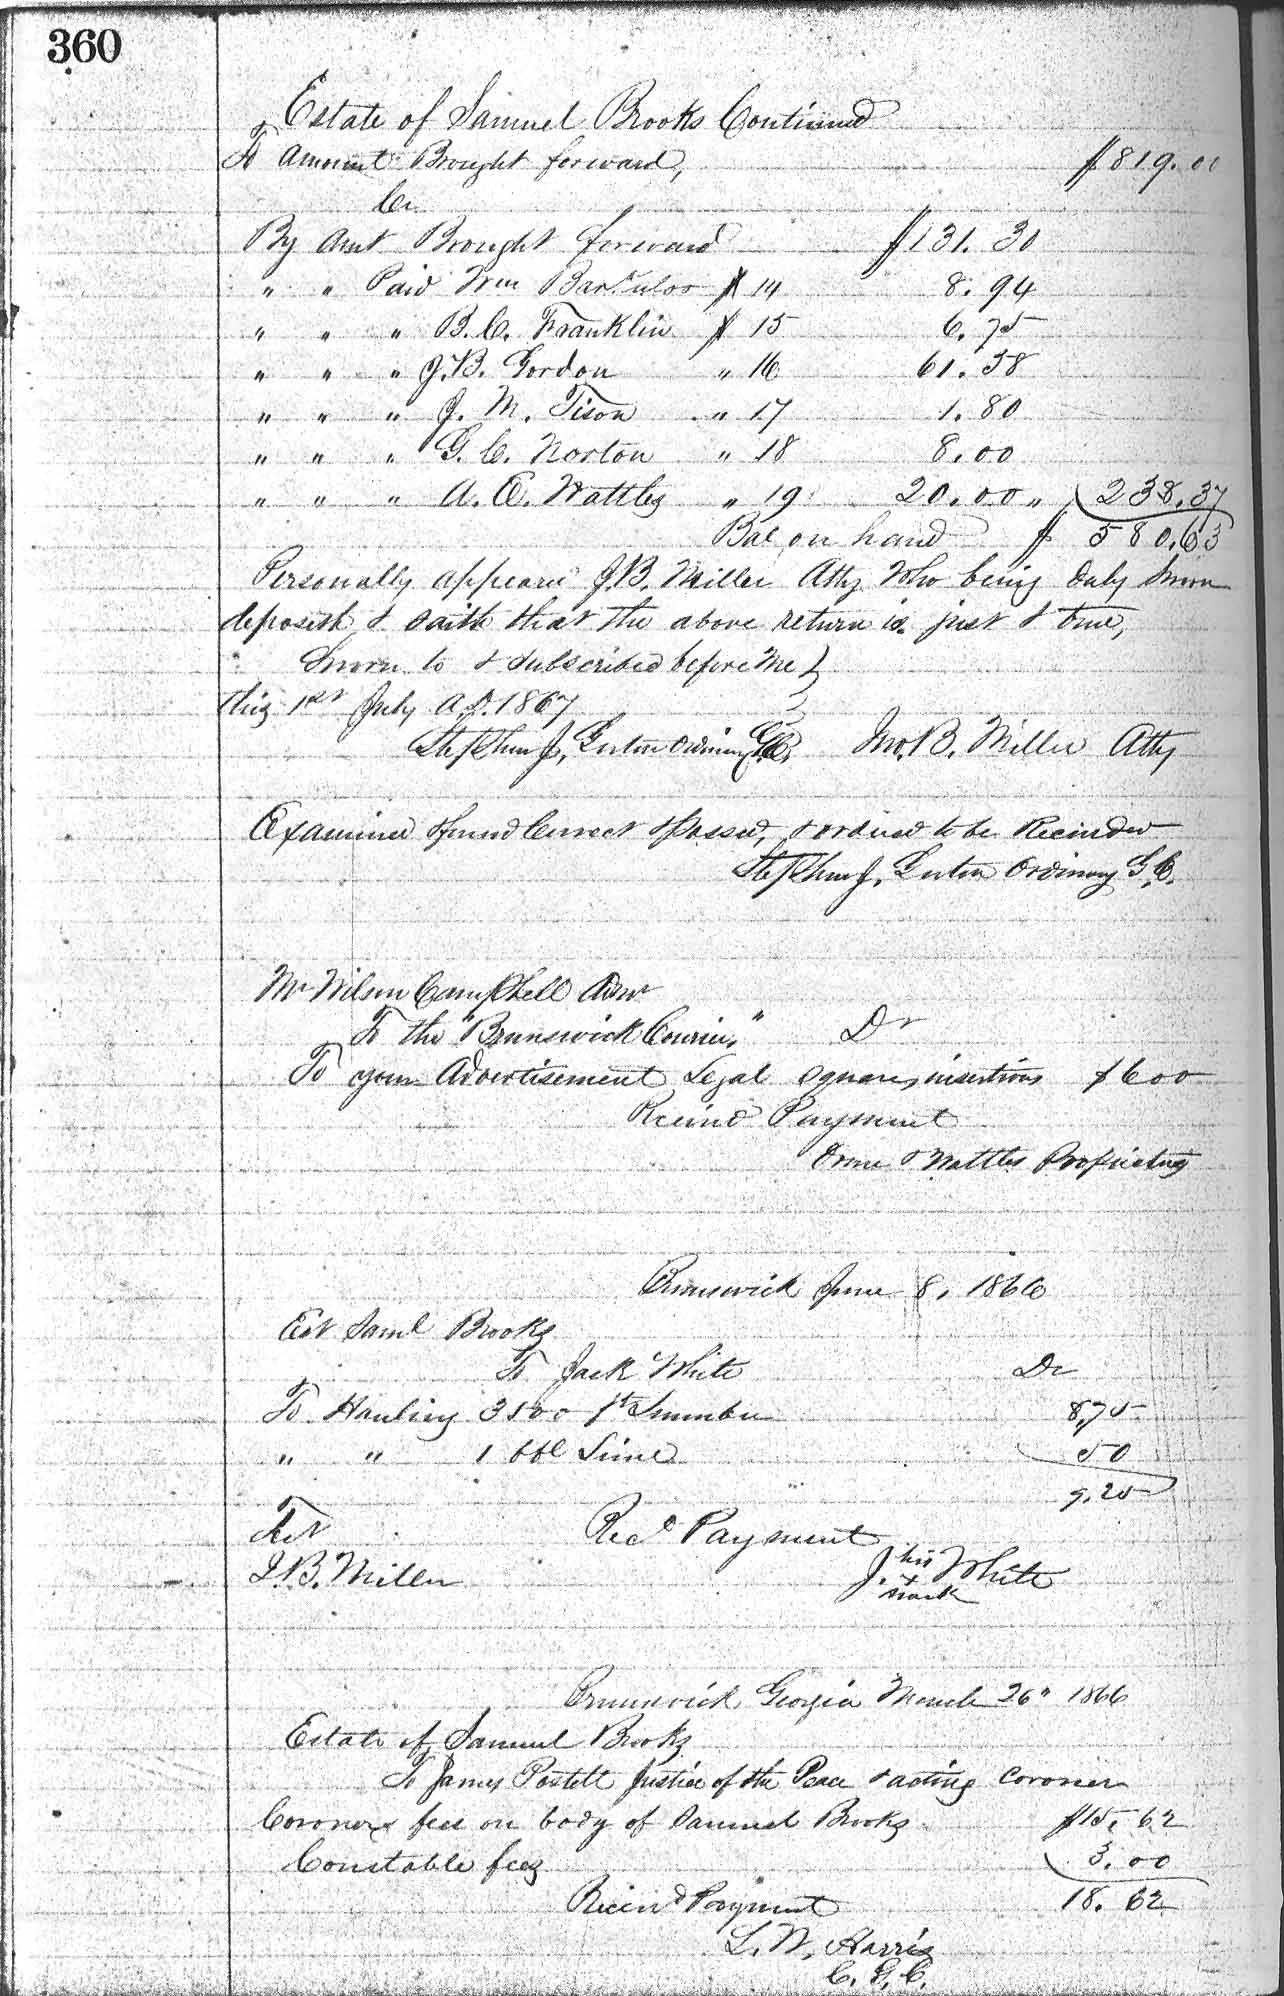 360
Estate of Samuel Brooks Continued
To Amount Brought forward, $819.00
Cr
By Amt Brought forward $131.30
" " Paid Wm # 14 8.94
" " " B. C. Franklin # 15 6.75
" " " J. B. Gordon " 16 61.58
" " " J. M. Tison " 17 1.80
" " " G. C. Norton " 18 8.00
" " " A. E. Wattles " 19 20.00 " 238.37
Bal on hand $ 580.63
Personally appeard J. B. Miller Atty Who being duly sworn
deposeth & saith that the above return is just & true,
Sworn to & subscribed before me }
this 1st July A.D. 1867
Stephen J. Ordinary G.C. Jno. B. Miller Atty
Examined & found Correct & Passed, & ordered to be Recorded
Stephen J. Ordinary G.C.
Mr Wilson Campbell Admr
To the "Brunswick Courier," Dr
To your Advertisement Legal square, insertions $600
Recievd Payment
& Wattles Proprietors
Brunswick June 8, 1866
Est Saml Brooks
To Jack White Dr
To Hauling 3500 ft Lumber 8,75
" " 1 bbl Lime 50
9.25
Test Recd Payment
J. B. Miller J. his x mark White
Brunswick Georgia March 26" 1866
Estate of Samuel Brooks
To James Postell Justice of the Peace & acting Coroner
Coroners fees on body of Samuel Brooks $15.62
Constable fees 3.00
Recievd Payment 18.62
L. W. Harris
C. G. C.